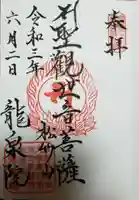 奉拝
聖観世音菩薩
松竹山
令和三年
六月二日
龍泉院